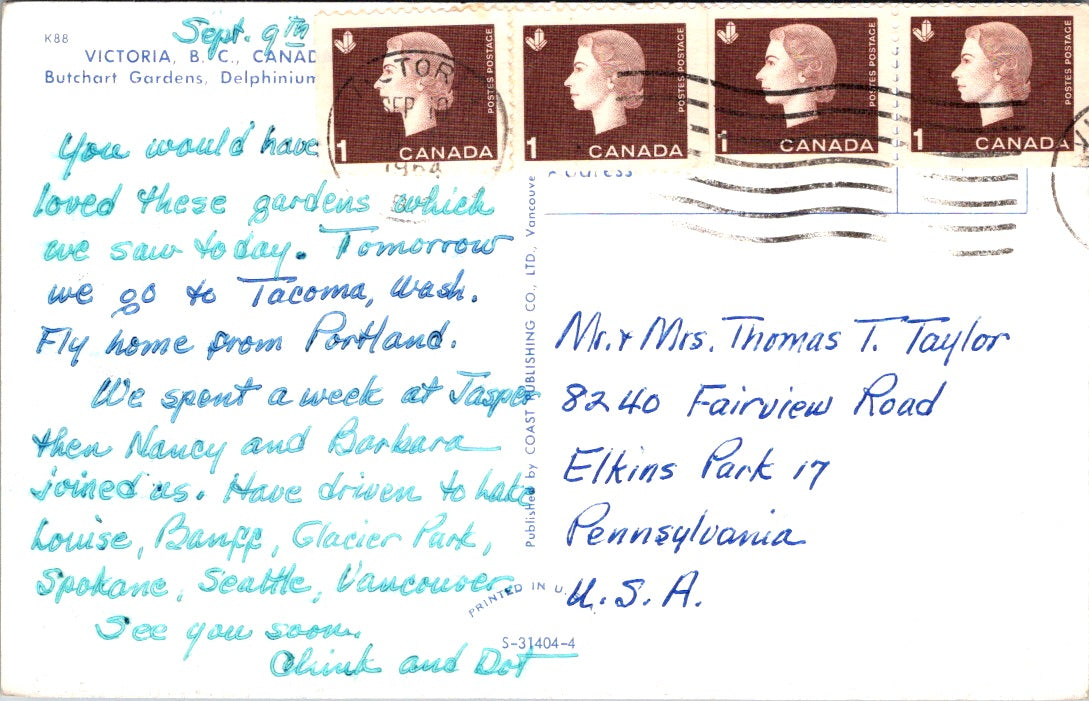 K88
Sept. 9th
VICTORIA, B. C., CANAD
Butchart Gardens, Delphinium
You would have
loved these gardens which
we saw today. Tomorrow
we go to Tacoma, Wash.
Fly home from Portland.
We spent a week at Jasper
then Nancy and Barbara
joined us. Have driven to Lake
Louise, Banff, Glacier Park,
Spokane, Seattle, Vancouver.
See you soon.
Chink and Dot
1 CANADA
POSTES POSTAGE
1 CANADA
POSTES POSTAGE
1 CANADA
POSTES POSTAGE
1 CANADA
POSTES POSTAGE
CTOR
SEP
1964
Published by COAST PUBLISHING CO., LTD., Vancouve
PRINTED IN U.
S-31404-4
Mr. & Mrs. Thomas T. Taylor
8240 Fairview Road
Elkins Park 17
Pennsylvania
U. S. A.